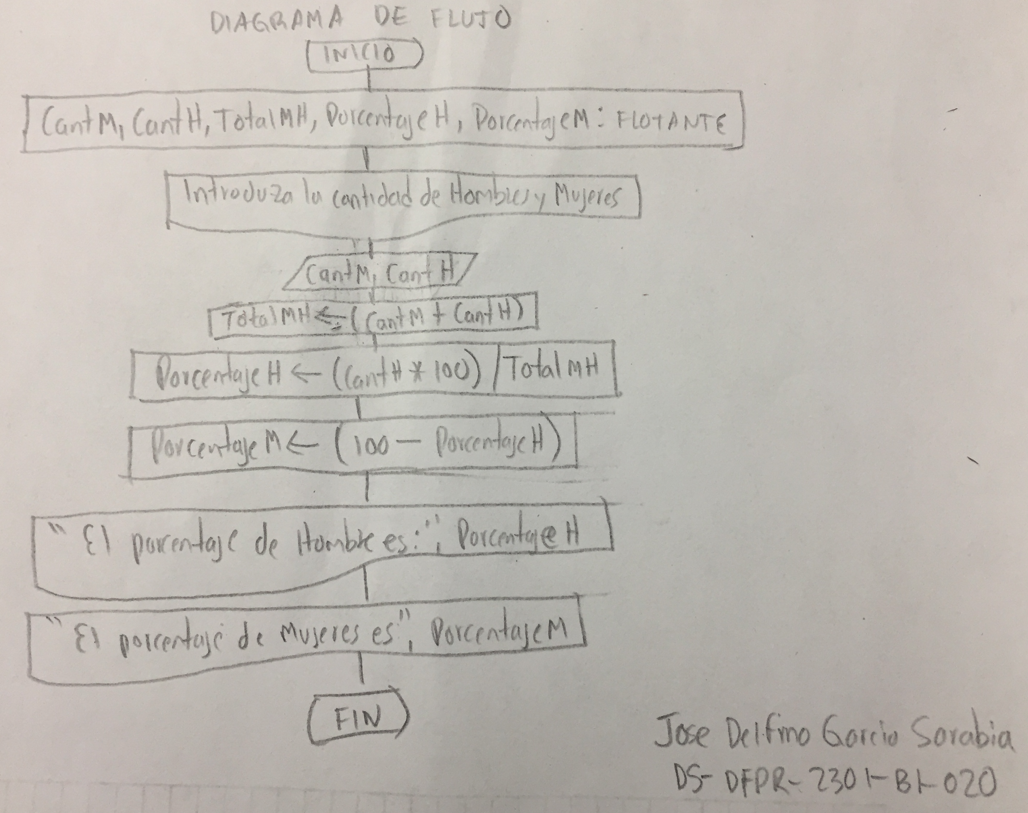 DIAGRAMA DE FLUJO
INICIO
CantM, CantH, TotalMH, PorcentajeH, PorcentajeM: FLOTANTE
Introduza la cantidad de Hombres y Mujeres
CantM, CantH
TotalMH ← (CantM + CantH)
PorcentajeH ← (CantH * 100) / TotalMH
PorcentajeM ← (100 - PorcentajeH)
"El porcentaje de Hombre es:", PorcentajeH
"El porcentaje de Mujeres es", PorcentajeM
FIN
Jose Delfino Garcia Sarabia
DS-DFPR-2301-B1-020